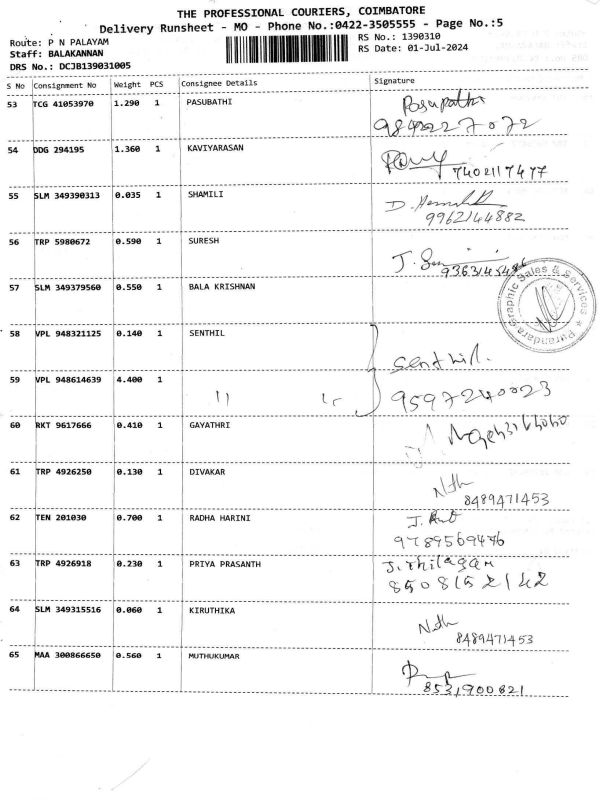 THE PROFESSIONAL COURIERS, COIMBATORE
Delivery Runsheet - MO - Phone No.:0422-3505555 - Page No.:5
Route: P N PALAYAM
RS No.: 1390310
Staff: BALAKANNAN
RS Date: 01-Jul-2024
DRS No.: DCJB139031005
S No Consignment No Weight PCS Consignee Details Signature
53 TCG 41053970 1.290 1 PASUBATHI Pasupathi
9842227072
54 DDG 294195 1.360 1 KAVIYARASAN
7402117477
55 SLM 349390313 0.035 1 SHAMILI D.
9962144882
56 TRP 5980672 0.590 1 SURESH J.
57 SLM 349379560 0.550 1 BALA KRISHNAN
Purandara Graphic Sales & Services
58 VPL 948321125 0.140 1 SENTHIL Senthil.
59 VPL 948614639 4.400 1 " " 9597240023
60 RKT 9617666 0.410 1 GAYATHRI
61 TRP 4926250 0.130 1 DIVAKAR
8489471453
62 TEN 201030 0.700 1 RADHA HARINI J.
9789569476
63 TRP 4926918 0.230 1 PRIYA PRASANTH J. Thilagam
8508152142
64 SLM 349315516 0.060 1 KIRUTHIKA
8489471453
65 MAA 300866650 0.560 1 MUTHUKUMAR
8531900821